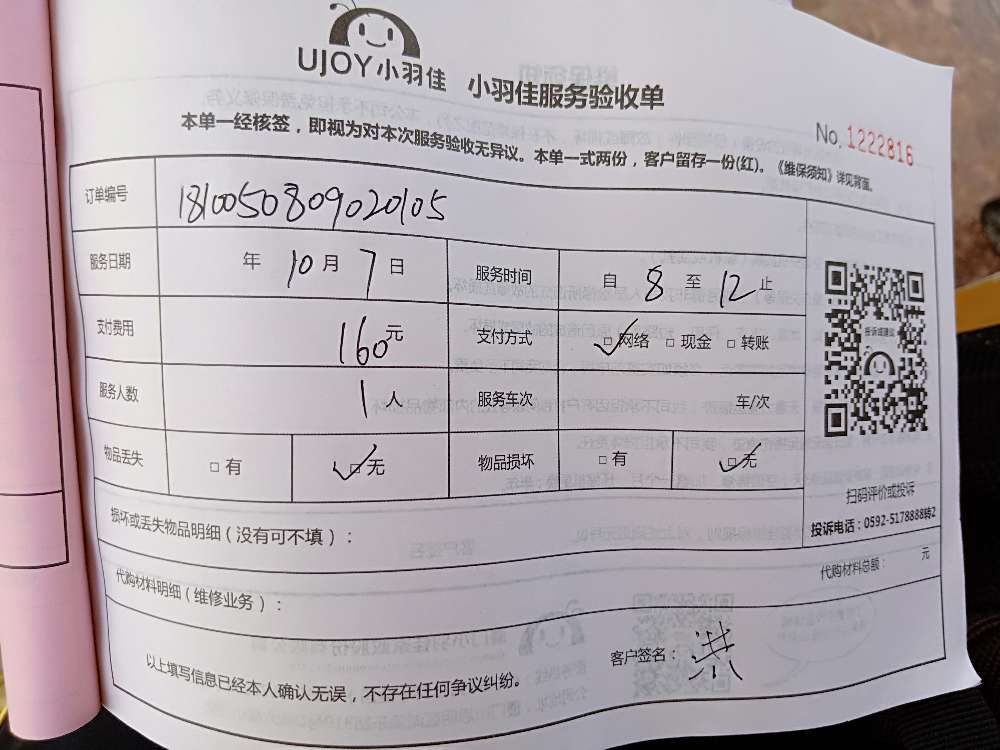 UJOY小羽佳 小羽佳服务验收单
No.1222816
本单一经核签，即视为对本次服务验收无异议。本单一式两份，客户留存一份(红)。《维保须知》详见背面。
订单编号 181005080902010 5
服务日期 年 10 月 7 日 服务时间 自 8 至 12 止
支付费用 160元 支付方式 ✓□网络 □现金 □转账
服务人数 1人 服务车次 车/次
物品丢失 □有 ✓□无 物品损坏 □有 ✓□无
投诉或建议
扫码评价或投诉
投诉电话：0592-5178888转2
损坏或丢失物品明细（没有可不填）：
代购材料明细（维修业务）： 代购材料总额： 元
以上填写信息已经本人确认无误，不存在任何争议纠纷。 客户签名：洪